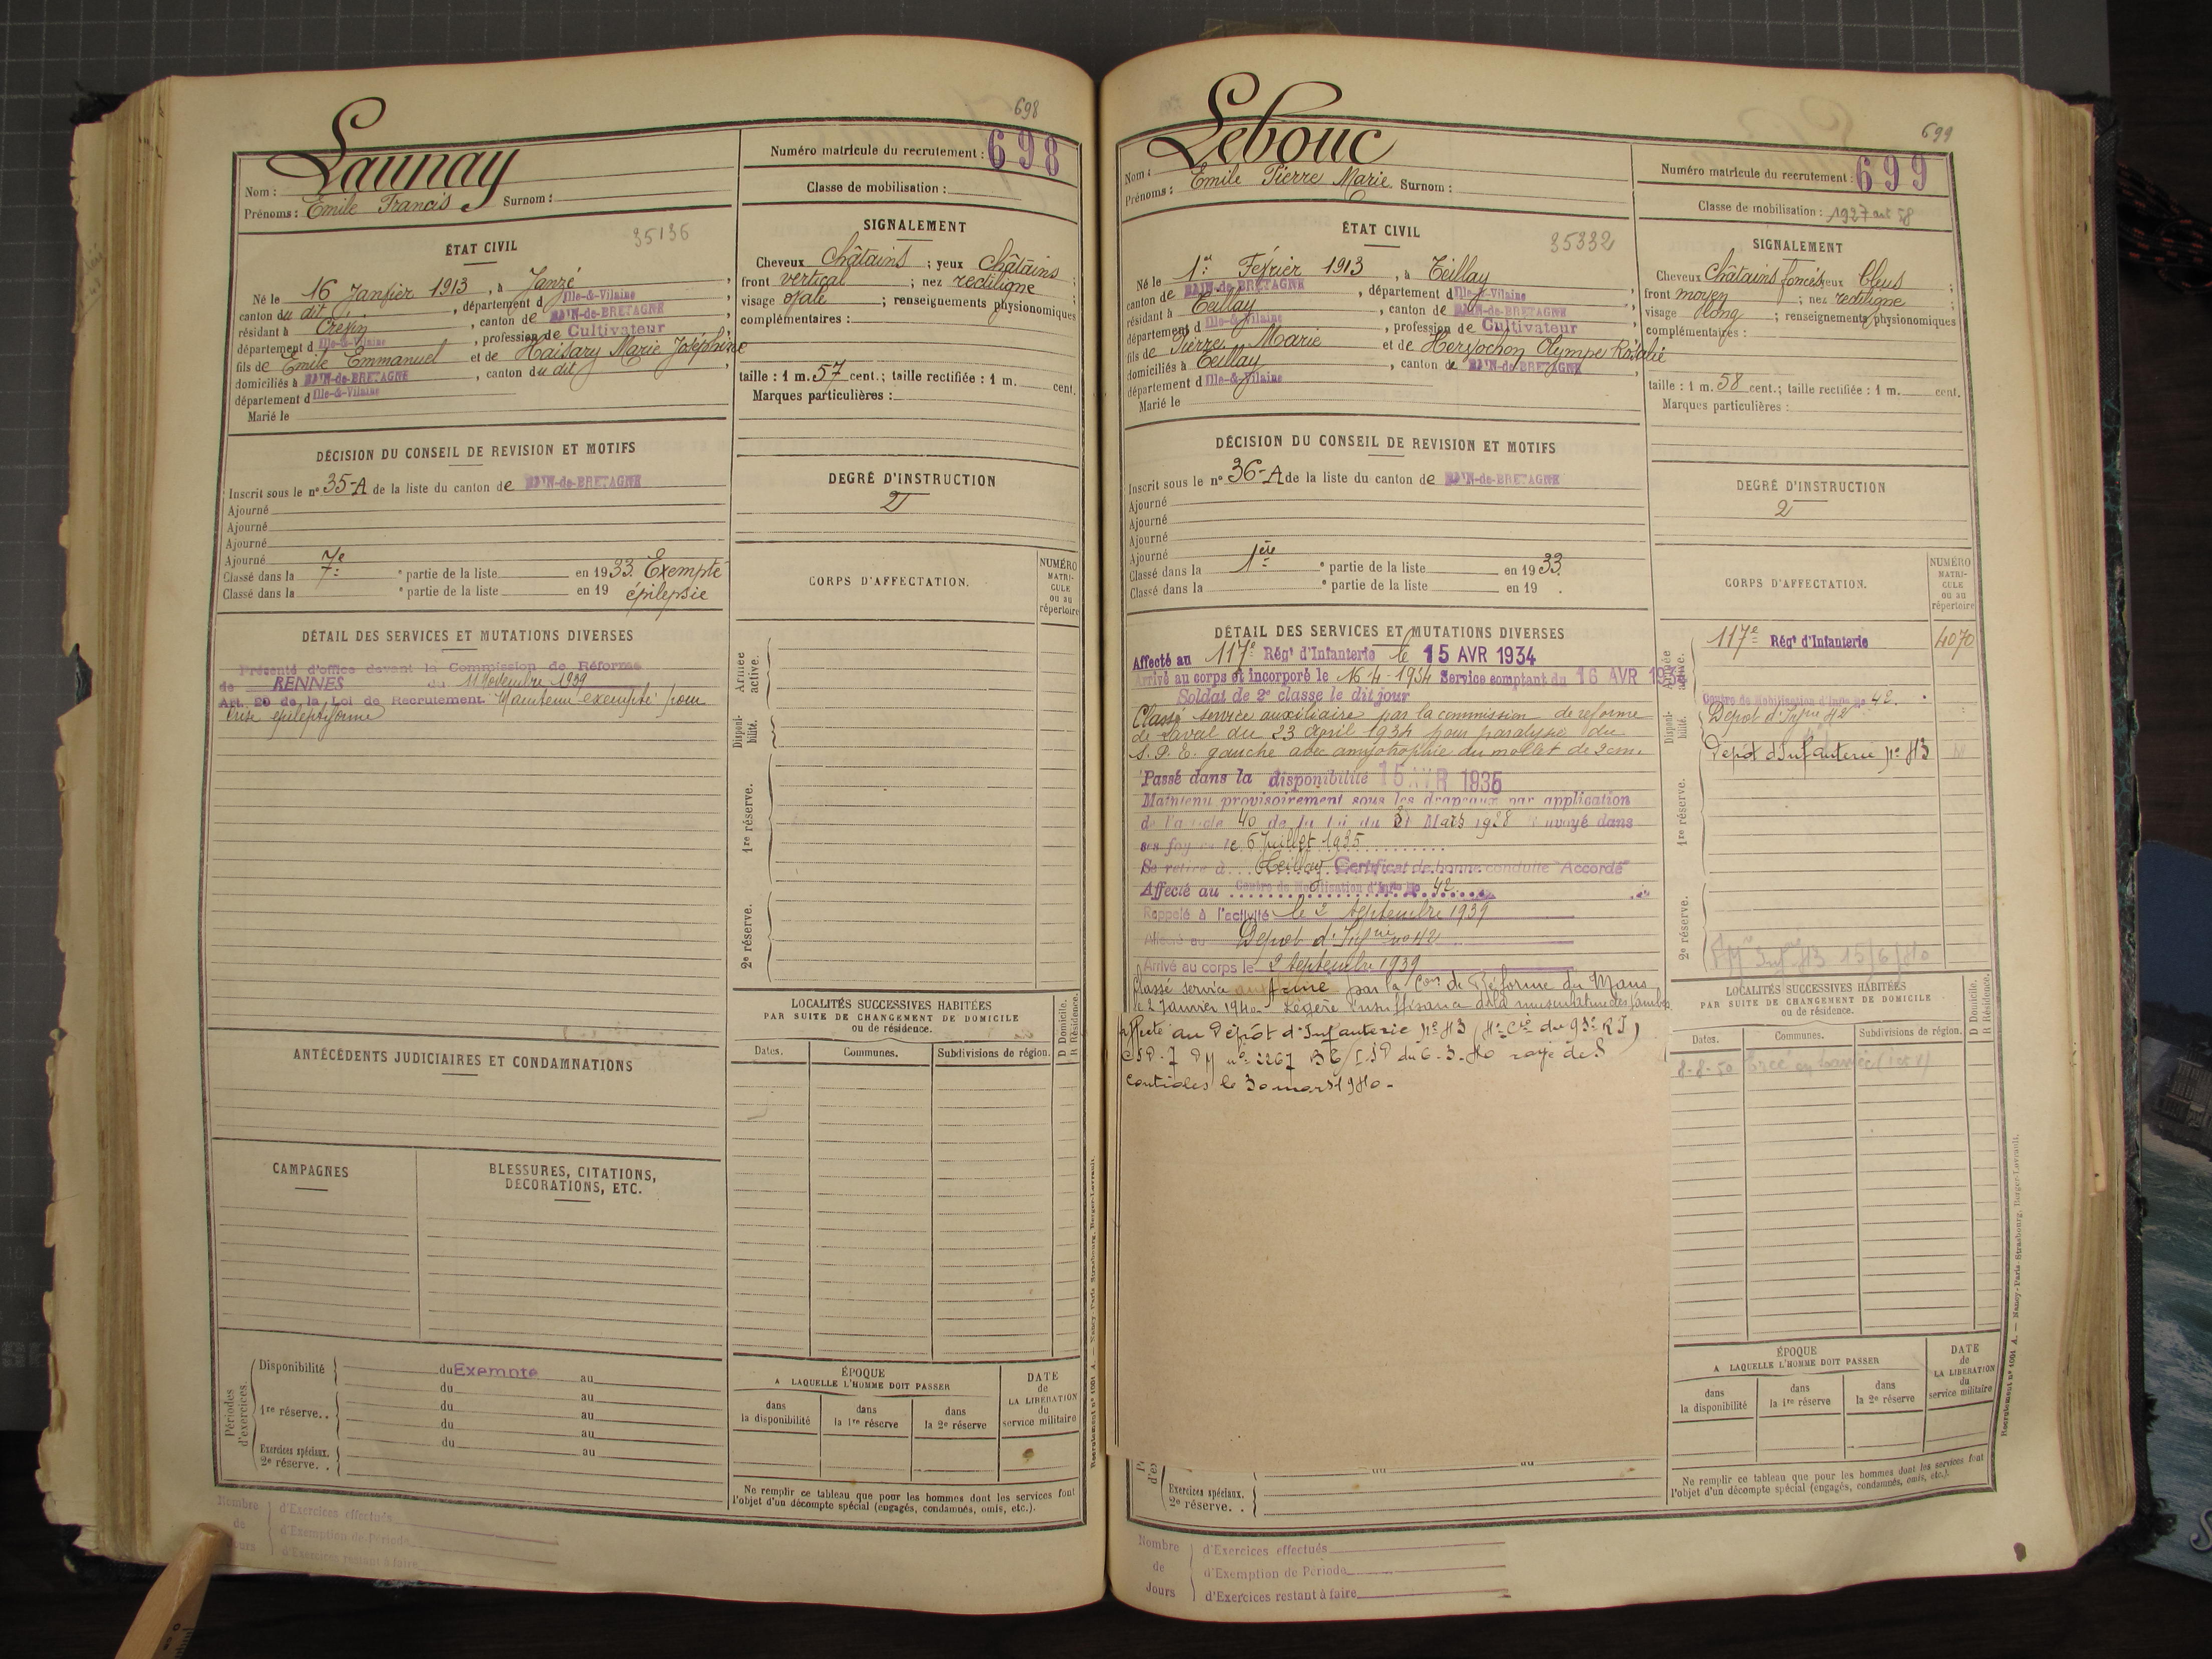 698
Launay
Nom :
Prénoms : Emile Francis Surnom :
Numéro matricule du recrutement : 698
Classe de mobilisation :
ÉTAT CIVIL
35136
Né le 16 Janvier 1913, à Janzé,
canton du dit, département d Ille-&-Vilaine,
résidant à Crevin, canton de BAIN-de-BRETAGNE,
département d Ille-&-Vilaine, profession de Cultivateur,
fils de Emile Emmanuel et de Haisary Marie Joséphine
domiciliés à BAIN-de-BRETAGNE, canton du dit,
département d Ille-&-Vilaine
Marié le
SIGNALEMENT
Cheveux Châtains ; yeux Châtains ;
front vertical ; nez rectiligne ;
visage ovale ; renseignements physionomiques
complémentaires :
taille : 1 m. 57 cent.; taille rectifiée : 1 m. cent.
Marques particulières :
DÉCISION DU CONSEIL DE REVISION ET MOTIFS
Inscrit sous le n° 35-A de la liste du canton de BAIN-de-BRETAGNE
Ajourné
Ajourné
Ajourné
Ajourné
Classé dans la 7e ° partie de la liste en 1933. Exempté
Classé dans la ° partie de la liste en 19 épilepsie
DEGRÉ D'INSTRUCTION
2
CORPS D'AFFECTATION.
NUMÉRO
MATRI-
CULE
OU AU
répertoire
DÉTAIL DES SERVICES ET MUTATIONS DIVERSES
Présenté d'office devant la Commission de Réforme
de RENNES du 11 Novembre 1939
Art. 20 de la Loi de Recrutement. Maintenu exempté pour
crise epileptiforme
Armée
active.
Disponi-
bilité.
1re réserve.
2e réserve.
LOCALITÉS SUCCESSIVES HABITÉES
PAR SUITE DE CHANGEMENT DE DOMICILE
ou de résidence.
D Domicile.
R Résidence.
Dates.
Communes.
Subdivisions de région.
ANTÉCÉDENTS JUDICIAIRES ET CONDAMNATIONS
CAMPAGNES
BLESSURES, CITATIONS,
DÉCORATIONS, ETC.
Périodes
d'exercices.
Disponibilité du Exempté au
du au
1re réserve.. du au
du au
Exercices spéciaux.
2e réserve. . du au
ÉPOQUE
A LAQUELLE L'HOMME DOIT PASSER
dans
la disponibilité
dans
la 1re réserve
dans
la 2e réserve
DATE
de
LA LIBÉRATION
du
service militaire
Ne remplir ce tableau que pour les hommes dont les services font
l'objet d'un décompte spécial (engagés, condamnés, omis, etc.).
Recrutement n° 1001 A. — Nancy-Paris-Strasbourg, Berger-Levrault.
Nombre
de
Jours
d'Exercices effectués
d'Exemption de Période
d'Exercices restant à faire
699
Lebouc
Nom :
Prénoms : Emile Pierre Marie. Surnom :
Numéro matricule du recrutement : 699
Classe de mobilisation : 1927 art 58
ÉTAT CIVIL
35332
Né le 1er Février 1913, à Teillay,
canton de BAIN-de-BRETAGNE, département d Ille-&-Vilaine,
résidant à Teillay, canton de BAIN-de-BRETAGNE,
département d Ille-&-Vilaine, profession de Cultivateur,
fils de Pierre Marie et de Hervochon Olympe Rosalie
domiciliés à Teillay, canton de BAIN-de-BRETAGNE,
département d Ille-&-Vilaine
Marié le
SIGNALEMENT
Cheveux Châtains foncés yeux bleus ;
front moyen ; nez rectiligne ;
visage long ; renseignements physionomiques
complémentaires :
taille : 1 m. 58 cent.; taille rectifiée : 1 m. cent.
Marques particulières :
DÉCISION DU CONSEIL DE REVISION ET MOTIFS
Inscrit sous le n° 36-A de la liste du canton de BAIN-de-BRETAGNE
Ajourné
Ajourné
Ajourné
Ajourné
Classé dans la 1ère ° partie de la liste en 1933.
Classé dans la ° partie de la liste en 19 .
DEGRÉ D'INSTRUCTION
2
CORPS D'AFFECTATION.
NUMÉRO
MATRI-
CULE
ou au
répertoire
DÉTAIL DES SERVICES ET MUTATIONS DIVERSES
Affecté au 117e Régt d'Infanterie le 15 AVR 1934
Arrivé au corps et incorporé le 16-4-1934 Service comptant du 16 AVR 1934
Soldat de 2e classe le dit jour
Classé service auxiliaire par la commission de reforme
de Laval du 23 April 1934 pour paralysie du
S.P.E. gauche avec amyotrophie du mollet de 2cm.
Passé dans la disponibilité 15 AVR 1935
Maintenu provisoirement sous les drapeaux par application
de l'article 40 de la loi du 31 Mars 1928 Envoyé dans
ses foyers le 6 Juillet 1935
Se retire à Teillay. Certificat de bonne conduite "Accordé"
Affecté au Centre de Mobilisation d'Infie No 42
Rappelé à l'activité le 2 Septembre 1939
Affecté au Dépot d'Infrie no 42
Arrivé au corps le 2 Septembre 1939
Classé service armé par la Con de Réforme du Mans
le 2 Janvier 1940 - Légère insuffisance de la musculature des jambes
Affecté au Dépôt d'Infanterie N° 43
du 6-3-40 rayé des
contrôles le 30 mars 1940 -
Armée
active.
117e Régt d'Infanterie
4070
Disponi-
bilité.
Centre de Mobilisation d'Infie No 42.
Dépot d'Infrie 42
Dépôt d'Infanterie N° 43
1re réserve.
2e réserve.
Infie 43 15/6/40
LOCALITÉS SUCCESSIVES HABITÉES
PAR SUITE DE CHANGEMENT DE DOMICILE
ou de résidence.
D Domicile.
R Résidence.
Dates.
Communes.
Subdivisions de région.
8-8-50
Exercices spéciaux.
2e réserve. .
ÉPOQUE
A LAQUELLE L'HOMME DOIT PASSER
dans
la disponibilité
dans
la 1re réserve
dans
la 2e réserve
DATE
de
LA LIBÉRATION
du
service militaire
Ne remplir ce tableau que pour les hommes dont les services font
l'objet d'un décompte spécial (engagés, condamnés, omis, etc.).
Recrutement n° 1001 A. — Nancy-Paris-Strasbourg, Berger-Levrault.
Nombre
de
Jours
d'Exercices effectués
d'Exemption de Période
d'Exercices restant à faire